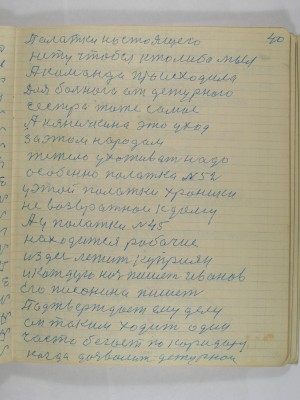 40
Палатки настоящего
нету чтобы ктолибо мыл
А каманда происходила
для больного от дежурного
сестра тоже самое
А нянички на это уход
за этом народом
тежело ухоживат надо
особенно палатка №52
у этой палатки хроники
не возвратной к дому
А у палатки №45
находится рабочие
изде лежит Куприян
и каждую ноч пишет иванов
его половина пишет
Подтверждает ему делу
он таким ходит один
часто бегает по каридору
когда дозволит дежурной